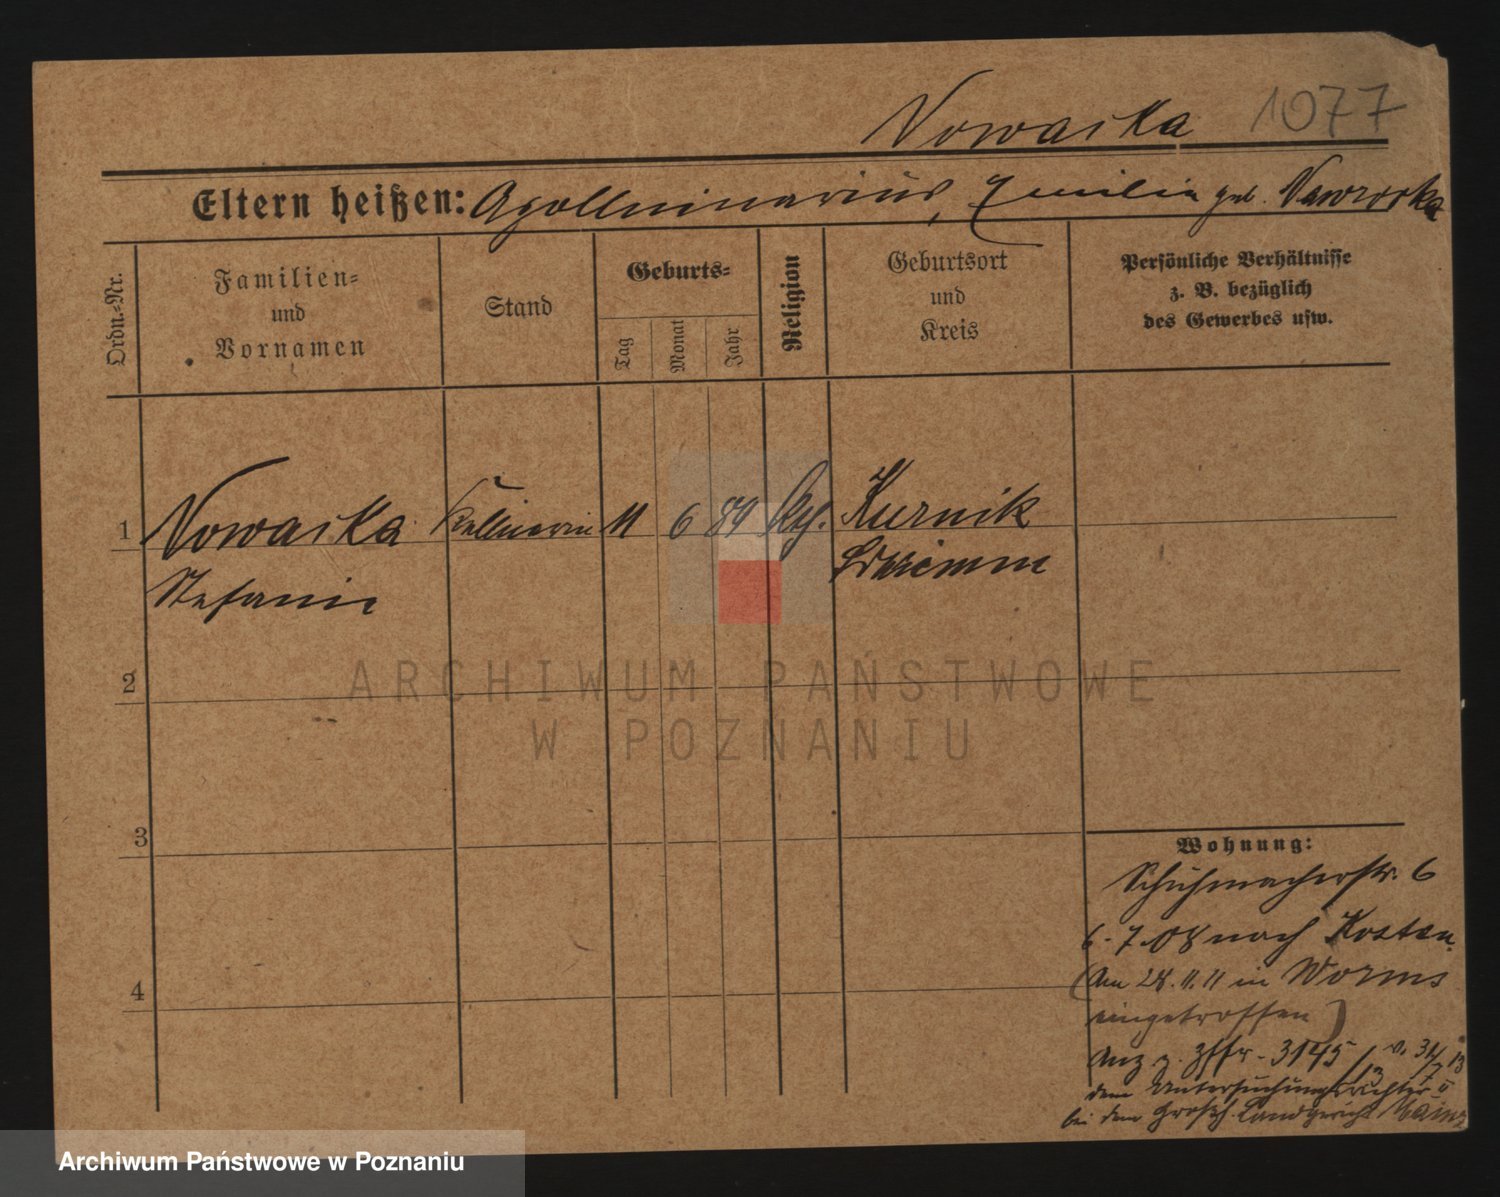 Nowacka 1077
Eltern heißen: Apollinarius, Emilie geb. Nawrocka
Ordn.=Nr.
Familien=
und
Vornamen
Stand
Geburts=
Tag
Monat
Jahr
Religion
Geburtsort
und
Kreis
Persönliche Verhältnisse
z. B. bezüglich
des Gewerbes usw.
1 Nowacka Kellnerin 11 6 89 kth. Kurnik
Stefanie Schrimm
2
3
4
Wohnung:
Schuhmacherstr. 6
6. 7. 08 nach Kosten
(Am 28. 11. 11 in Worms
eingetroffen)
Anz z. 3145/13 v. 31/7 13
dem Untersuchungsrichter II
bei dem Großh. Landgericht Mainz
ARCHIWUM PAŃSTWOWE
W POZNANIU
Archiwum Państwowe w Poznaniu